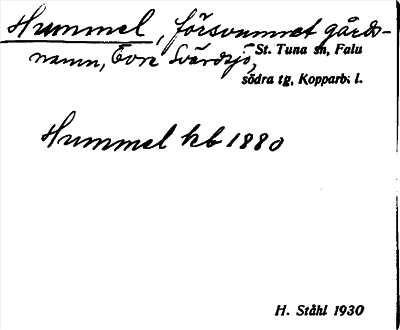 Hummel, försvunnet gårds-
namn, Övre Svärdsjö,
St. Tuna sn, Falu
södra tg, Kopparb. l.
Hummel kb 1880
H. Ståhl 1930